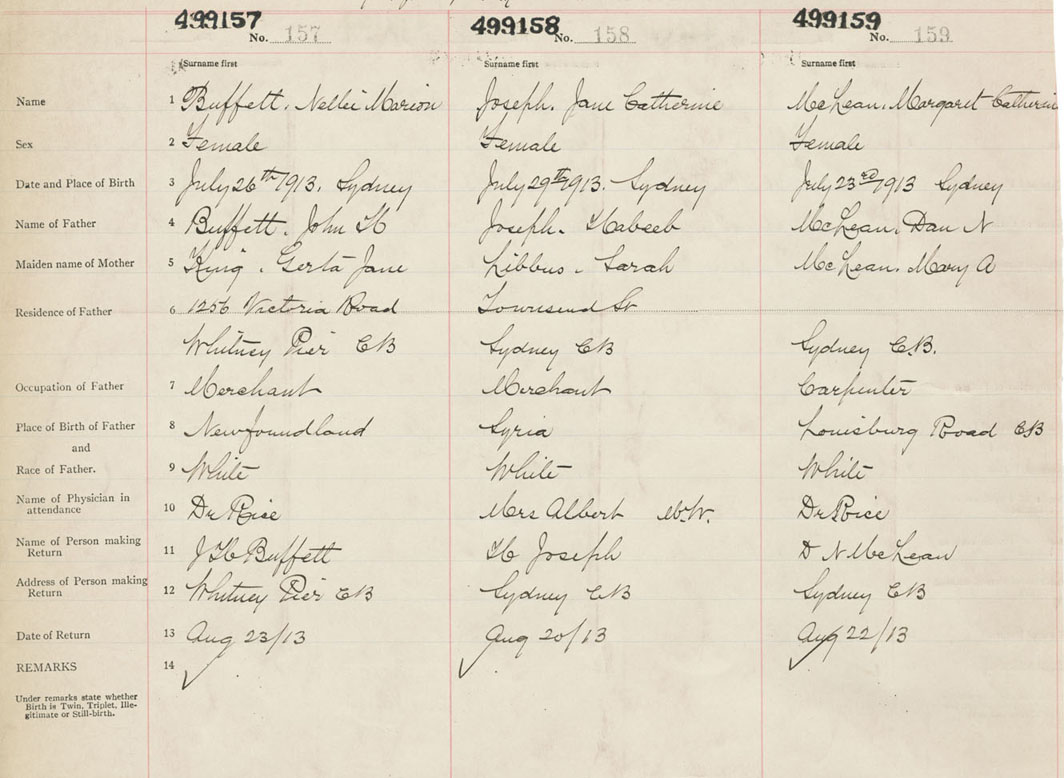 499157 499158 499159
No. 157 No. 158 No. 159
Surname first Surname first Surname first
Name 1 Buffett. Nellie Marion Joseph. Jane Catherine McLean. Margaret Catherine
Sex 2 Female Female Female
Date and Place of Birth 3 July 26th 1913. Sydney July 29th 1913. Sydney July 23rd 1913 Sydney
Name of Father 4 Buffett. John H Joseph. Habeeb McLean. Dan N
Maiden name of Mother 5 King. Gerta Jane Libbus. Sarah McLean. Mary A
Residence of Father 6 1256 Victoria Road Townsend St
Whitney Pier CB Sydney CB Sydney C.B.
Occupation of Father 7 Merchant Merchant Carpenter
Place of Birth of Father 8 Newfoundland Syria Louisburg Road CB
and
Race of Father. 9 White White White
Name of Physician in
attendance 10 Dr Rice Mrs Albert M.W. Dr Rice
Name of Person making
Return 11 J H Buffett H Joseph D N McLean
Address of Person making
Return 12 Whitney Pier CB Sydney CB Sydney CB
Date of Return 13 Aug 23/13 Aug 20/13 Aug 22/13
REMARKS 14
Under remarks state whether
Birth is Twin, Triplet, Ille-
gitimate or Still-birth.